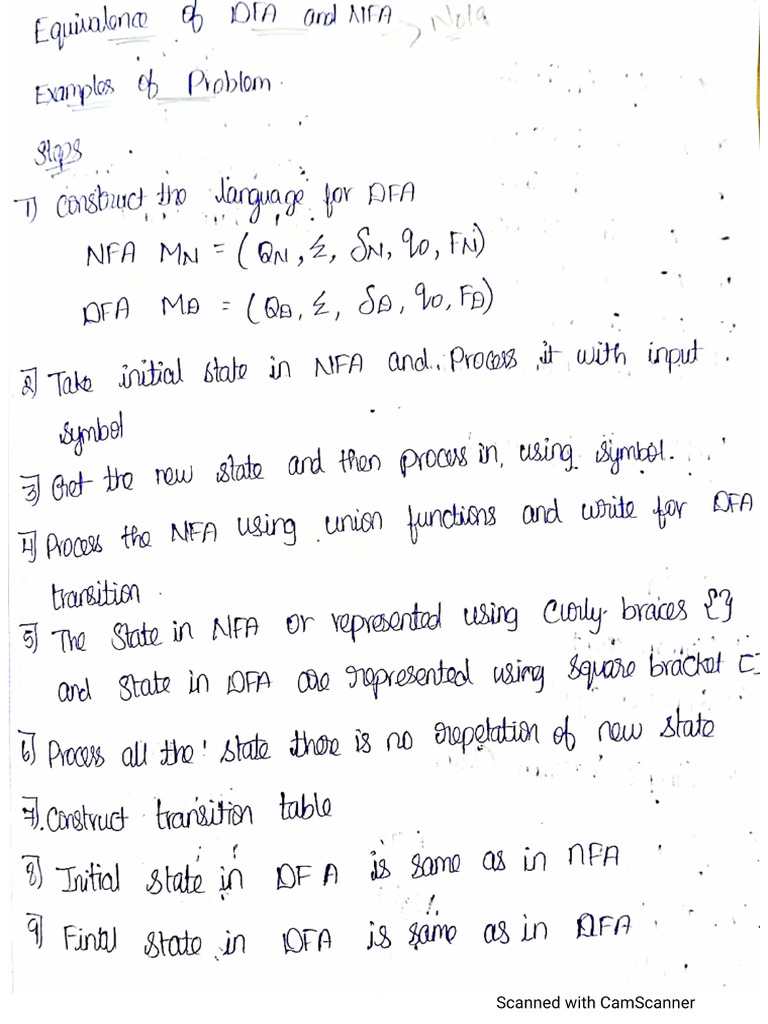 Equivalence of DFA and NFA
Examples of Problem.
Steps
1) construct the language for DFA
NFA MN = (QN, Σ, δN, q0, FN)
DFA MD = (QD, Σ, δD, q0, FD)
2) Take initial state in NFA and. Process it with input
symbol
3) Get the new state and then process in using symbol.
4) Process the NFA using union functions and write for DFA
transition.
5) The State in NFA or represented using Curly braces {}
and State in DFA are represented using square bracket []
6) Process all the state there is no repetation of new state
7). Construct transition table
8) Initial state in DFA is same as in NFA
9) Final state in DFA is same as in DFA
Scanned with CamScanner